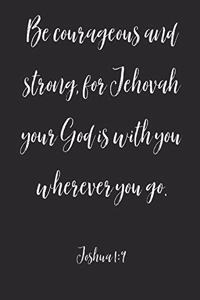 Be courageous and
strong, for Jehovah
your God is with you
wherever you go.
Joshua 1:9